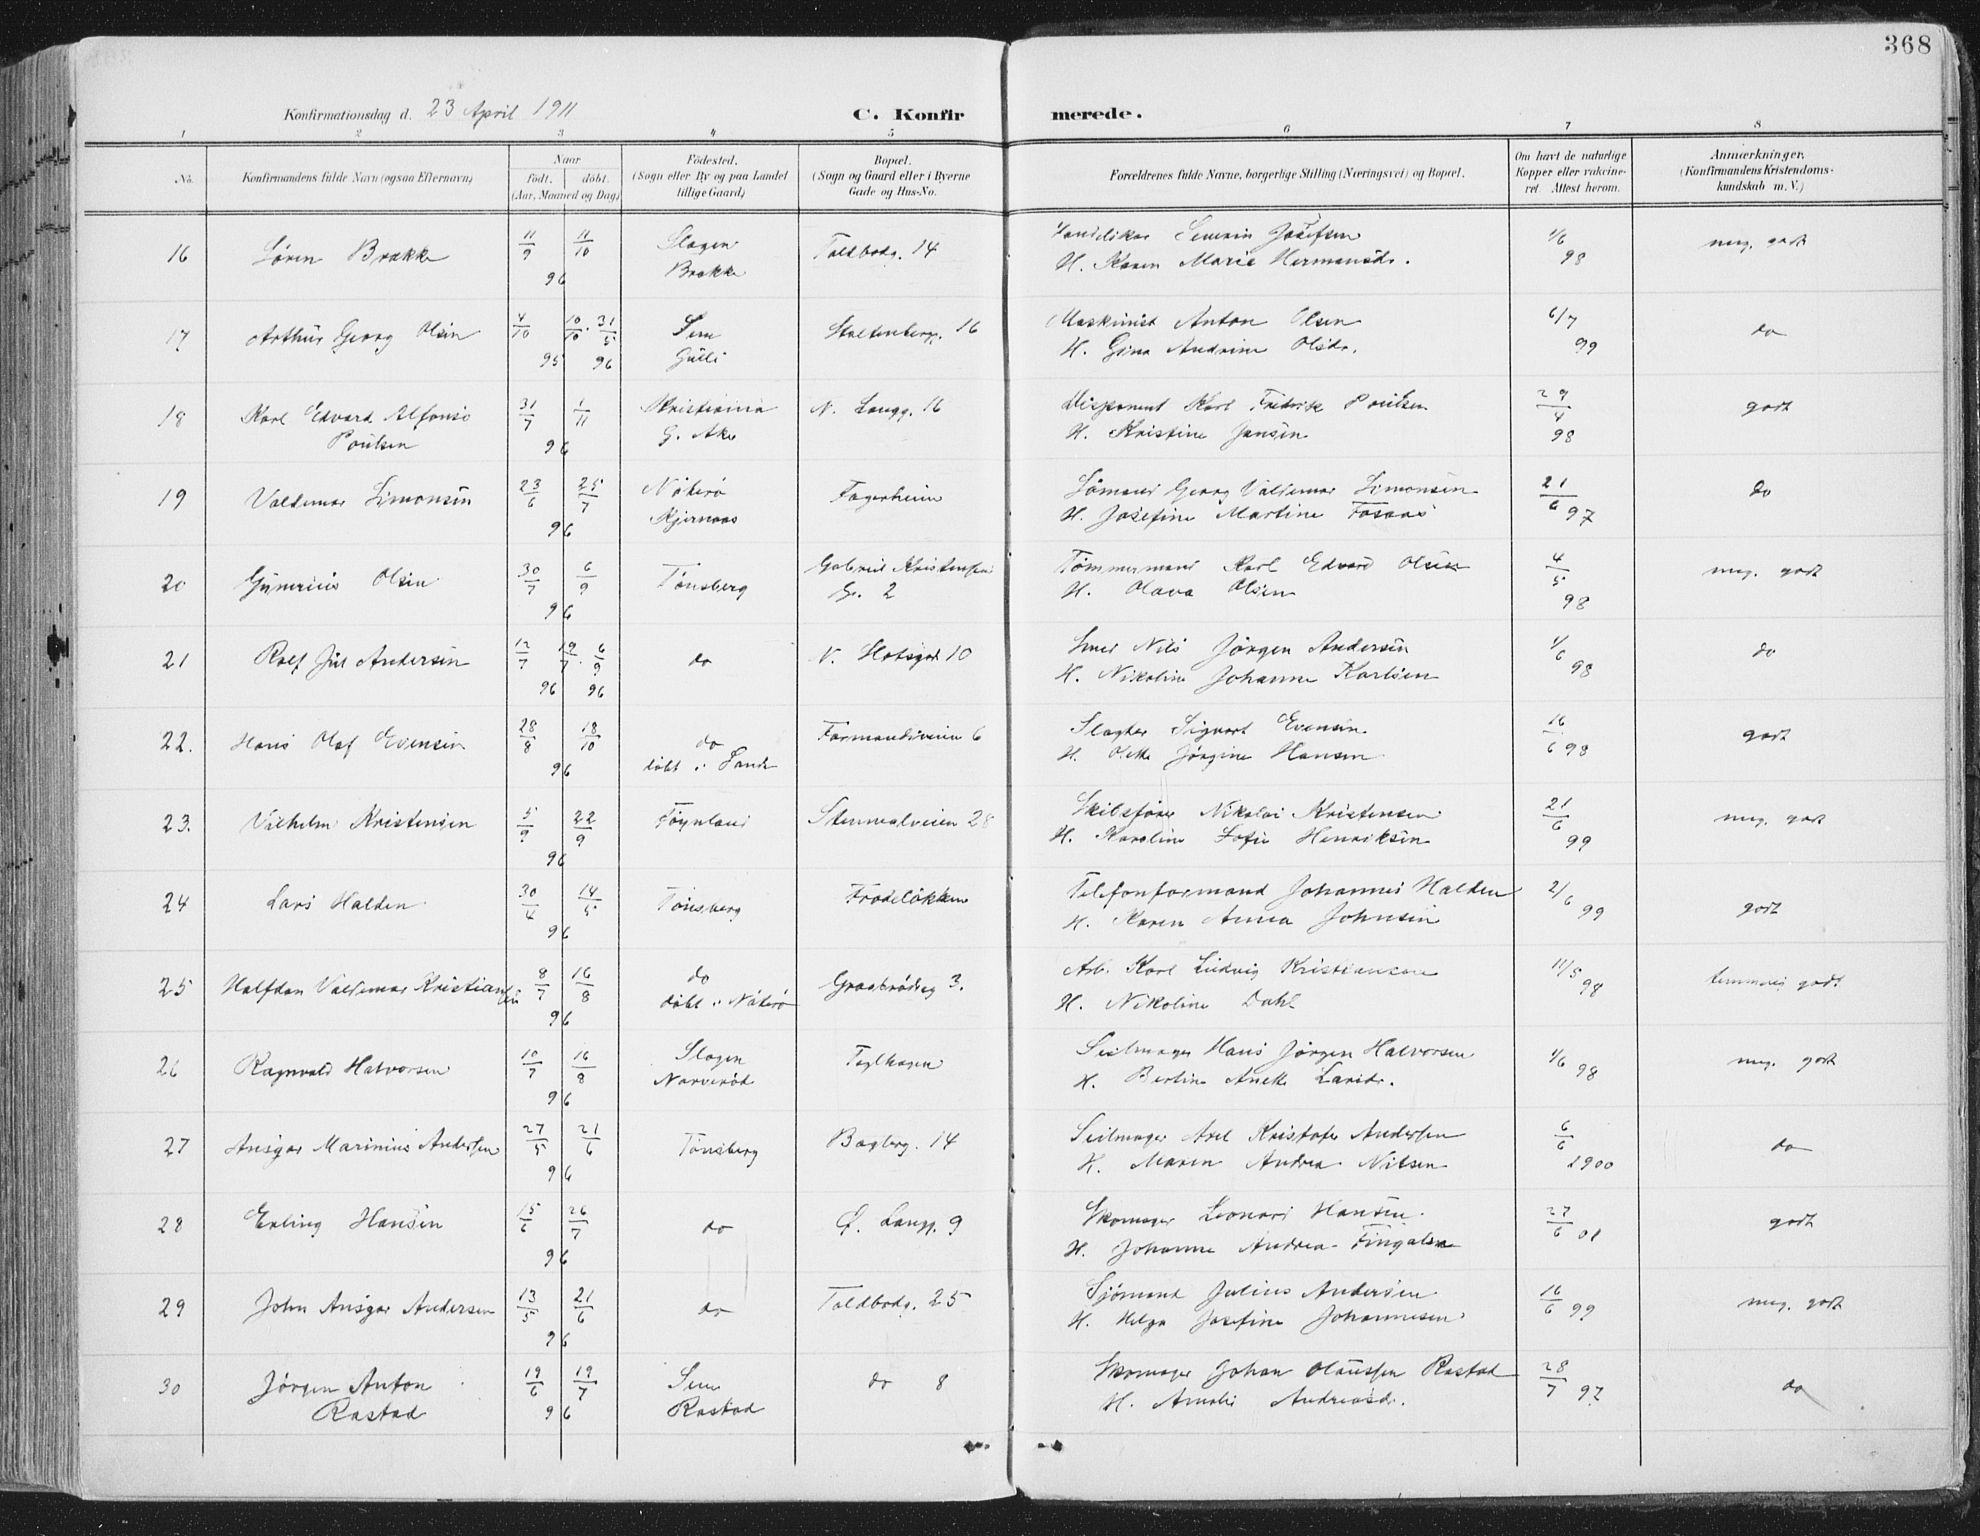 368
Konfirmationsdag d. 23 April 1911
C. Konfirmerede.
1 2 3 4 5 6 7 8
No. Konfirmandens fulde Navn (ogsaa Efternavn) Naar Født. døbt. (Aar, Maaned og Dag) Fødested. (Sogn eller By og paa Landet tillige Gaard) Bopæl. (Sogn og Gaard eller i Byerne Gade og Hus-No. Forældrenes fulde Navne, borgerlige Stilling (Næringsvei) og Bopæl. Om havt de naturlige Kopper eller vakcineret. Attest herom. Anmærkninger. (Konfirmandens Kristendomskundskab m. V.)
16 Søren Brække 11/9 11/10 96 Slagen Brække Toldbodg. 14 Severin Josefsen 1/6 98 meg. godt
H. Karen Marie Hermansdr.
17 Arthur Georg Olsen 4/10 95 10/10 . 31/5 96 Sem Gulli Stoltenbergg. 16 Maskinist Anton Olsen 6/7 99 do
H. Gina Andrine Olsdr.
18 Karl Edvard Alfonso Poulsen 31/7 1/11 96 Kristiania G. Aker N. Langg. 16 Disponent Karl Fredrik Poulsen 29/4 98 godt
H. Kristine Jensen
19 Valdemar Simonsen 23/6 25/7 96 Nøterø Kjernaas Fagerheim Sømand Georg Valdemar Simonsen 21/6 97 do
H. Josefine Martine
20 Olsen 30/7 6/9 96 Tønsberg Gabriel Kristensens G. 2 Tømmermand Karl Edvard Olsen 4/5 98 meg. godt
H. Olava Olsen
21 Rolf Jul Andersen 12/7 96 19/7 . 6/9 96 do 10 Smed Nils Jørgen Andersen 1/6 98 do
H. Nikoline Johanne Karlsen
22. Hans Olaf Evensen 28/8 18/10 96 do døbt i Sande Farmandsveien 6 Slagter Sigvart Evensen 16/6 98 godt
H. Olette Jørgine Hansen
23. Vilhelm Kristensen 5/9 22/9 96 Føynland 28 Skibsfører Nikolai Kristensen 21/6 99 meg. godt
H. Karoline Sofie Henriksen
24 Lars Halden 30/4 14/5 96 Tønsberg Frodeløkken Telefonformand Johannes Halden 2/6 99 godt
H. Karen Anna Johnsen
25 Halfdan Valdemar Kristiansen 8/7 16/8 96 do døbt i Nøterø Graabrødreg 3. Arb. Karl Ludvig Kristiansen 11/5 98 temmelig godt
H. Nikoline Dahl
26 Ragnvald Halvorsen 10/7 16/8 96 Slagen Narverød Teglhagen Seilmager Hans Jørgen Halvorsen 1/6 98 meg. godt
H. Berline Anette Larsdr.
27 Ansgar Marinius Andersen 27/5 21/6 96 Tønsberg Bagberg. 14 Seilmager Axel Kristofer Andersen 6/6 1900 do
H. Maren Andrea Nilsen
28 Erling Hansen 15/6 26/7 96 do Ø. Langg. 9 Skomager Leonard Hansen 27/6 01 godt
H. Johanne Andrea Fingalsen
29 John Ansgar Andersen 13/5 21/6 96 do Toldbodg. 25 Sjømand Julius Andersen 16/6 99 meg. godt
H. Helga Josefine Johannesen
30 Jørgen Anton Rastad 19/6 19/7 96 Sem Rastad do 8 Skomager Johan Olaussen Rastad 28/7 97 do
H. Amalie Andreasdr.